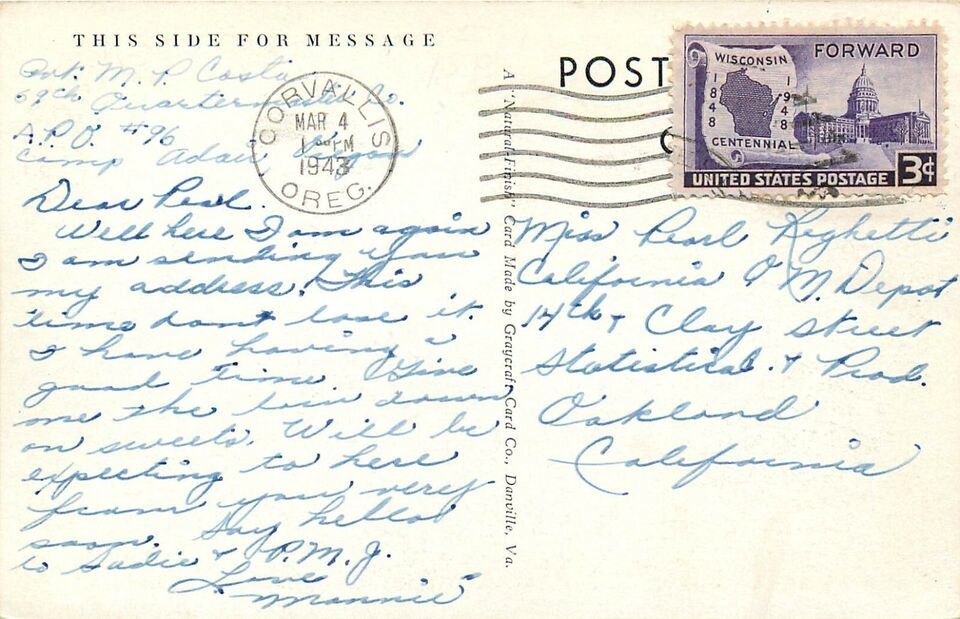 THIS SIDE FOR MESSAGE
Pvt. M. P. Costa
69th Quartermaster Co.
A.P.O. #96
Camp Adair Oregon
CORVALLIS
MAR 4
1 PM
1943
OREG.
Dear Pearl.
Well here I am again
I am sending you
my address. This
time dont lose it.
I have having a
good time. Give
me the low down
on sweets. Will be
expecting to here
from you very
soon. Say hello
to Sadie & P.M.J.
Love
Mannie
A "Natural-Finish" Card Made by Graycraft Card Co., Danville, Va.
POST
WISCONSIN
1848
1948
CENTENNIAL
FORWARD
UNITED STATES POSTAGE 3¢
Miss Pearl Reghetti
California Q M. Depot
14th & Clay Street
Statistical. & Prod.
Oakland
California